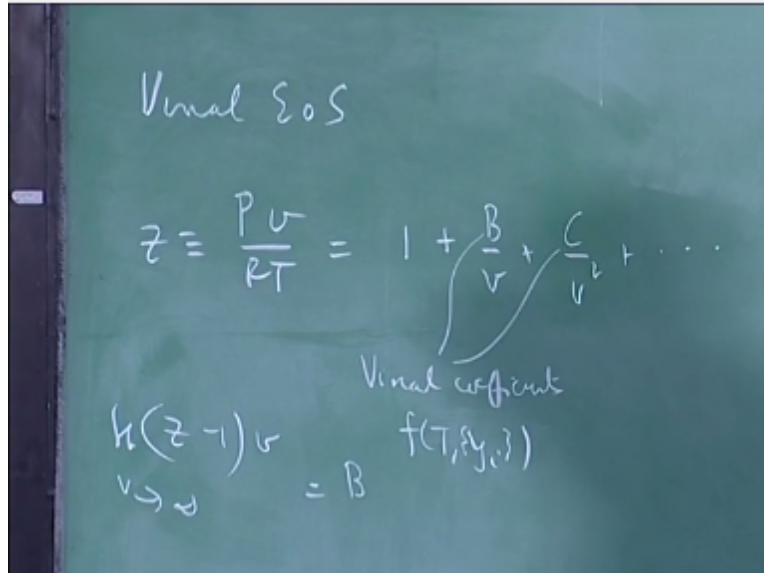 Virial EoS
z ≡ Pv/RT = 1 + B/v + C/v² + ...
Virial coefficients
f(T,{yi})
lt (z-1)v = B
v→∞